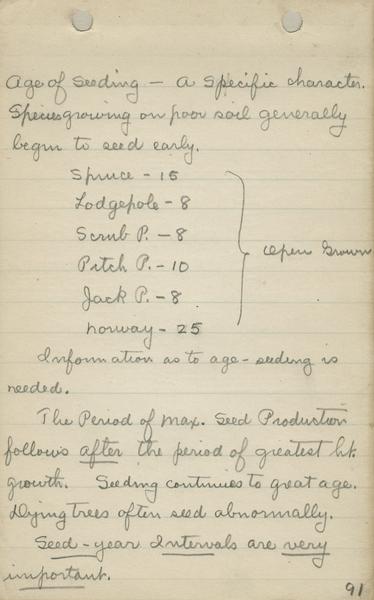 Age of Seeding — A Specific character.
Species growing on poor soil generally
begin to seed early.
Spruce - 15
Lodgepole - 8
Scrub P. - 8
Pitch P. - 10
Jack P. - 8
Norway - 25
Open Grown
Information as to age-seeding is
needed.
The Period of Max. Seed Production
follows after the period of greatest ht.
growth. Seeding continues to great age.
Dying trees often seed abnormally.
Seed-year Intervals are very
important.
91